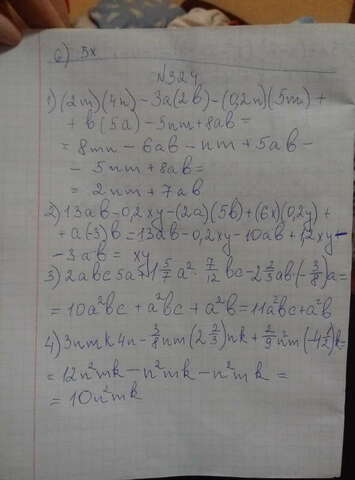 6) 5x
№324
1) (2m)(4n) - 3a(2b) - (0,2n)(5m) +
+ b(5a) - 5nm + 8ab =
= 8mn - 6ab - nm + 5ab -
- 5nm + 8ab =
= 2nm + 7ab
2) 13ab - 0,2xy - (2a)(5b) + (6x)(0,2y) +
+ a(-3)b = 13ab - 0,2xy - 10ab + 1,2xy -
- 3ab = xy
3) 2abc5a + 1 5/7 a² · 7/12 bc - 2 2/3 ab(-3/8)a =
= 10a²bc + a²bc + a²b = 11a²bc + a²b
4) 3nmk4n - 3/8 nm(2 2/3)nk + 2/9 n²m(-4 1/2)k =
= 12n²mk - n²mk - n²mk =
= 10n²mk